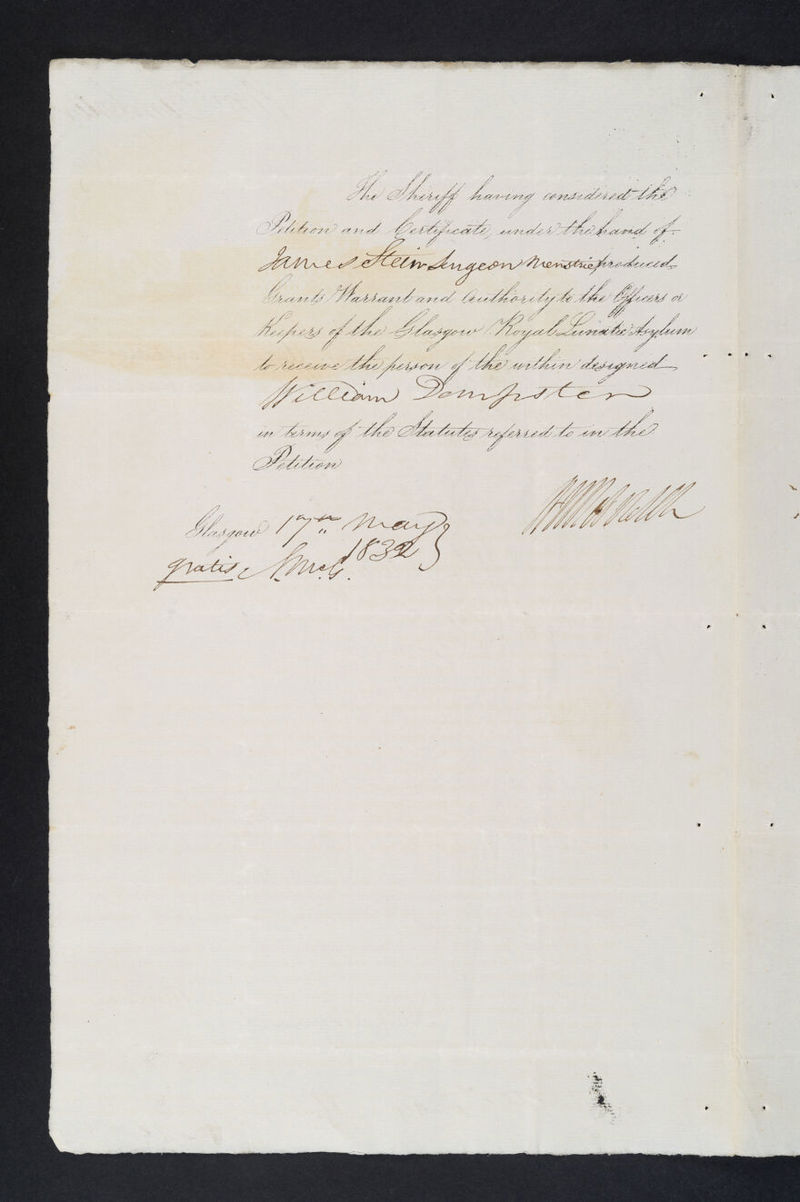 The Sheriff having considered the
Petition and Certificate, under the hand of
James Stein Surgeon Menstrie produced
Grants Warrant and Authority to the Officers or
Keepers of the Glasgow Royal Lunatic Asylum
to receive the person of the within designed
William Dempster
in terms of the Statutes referred to in the
Petition
Glasgow 17th May
1832
gratis